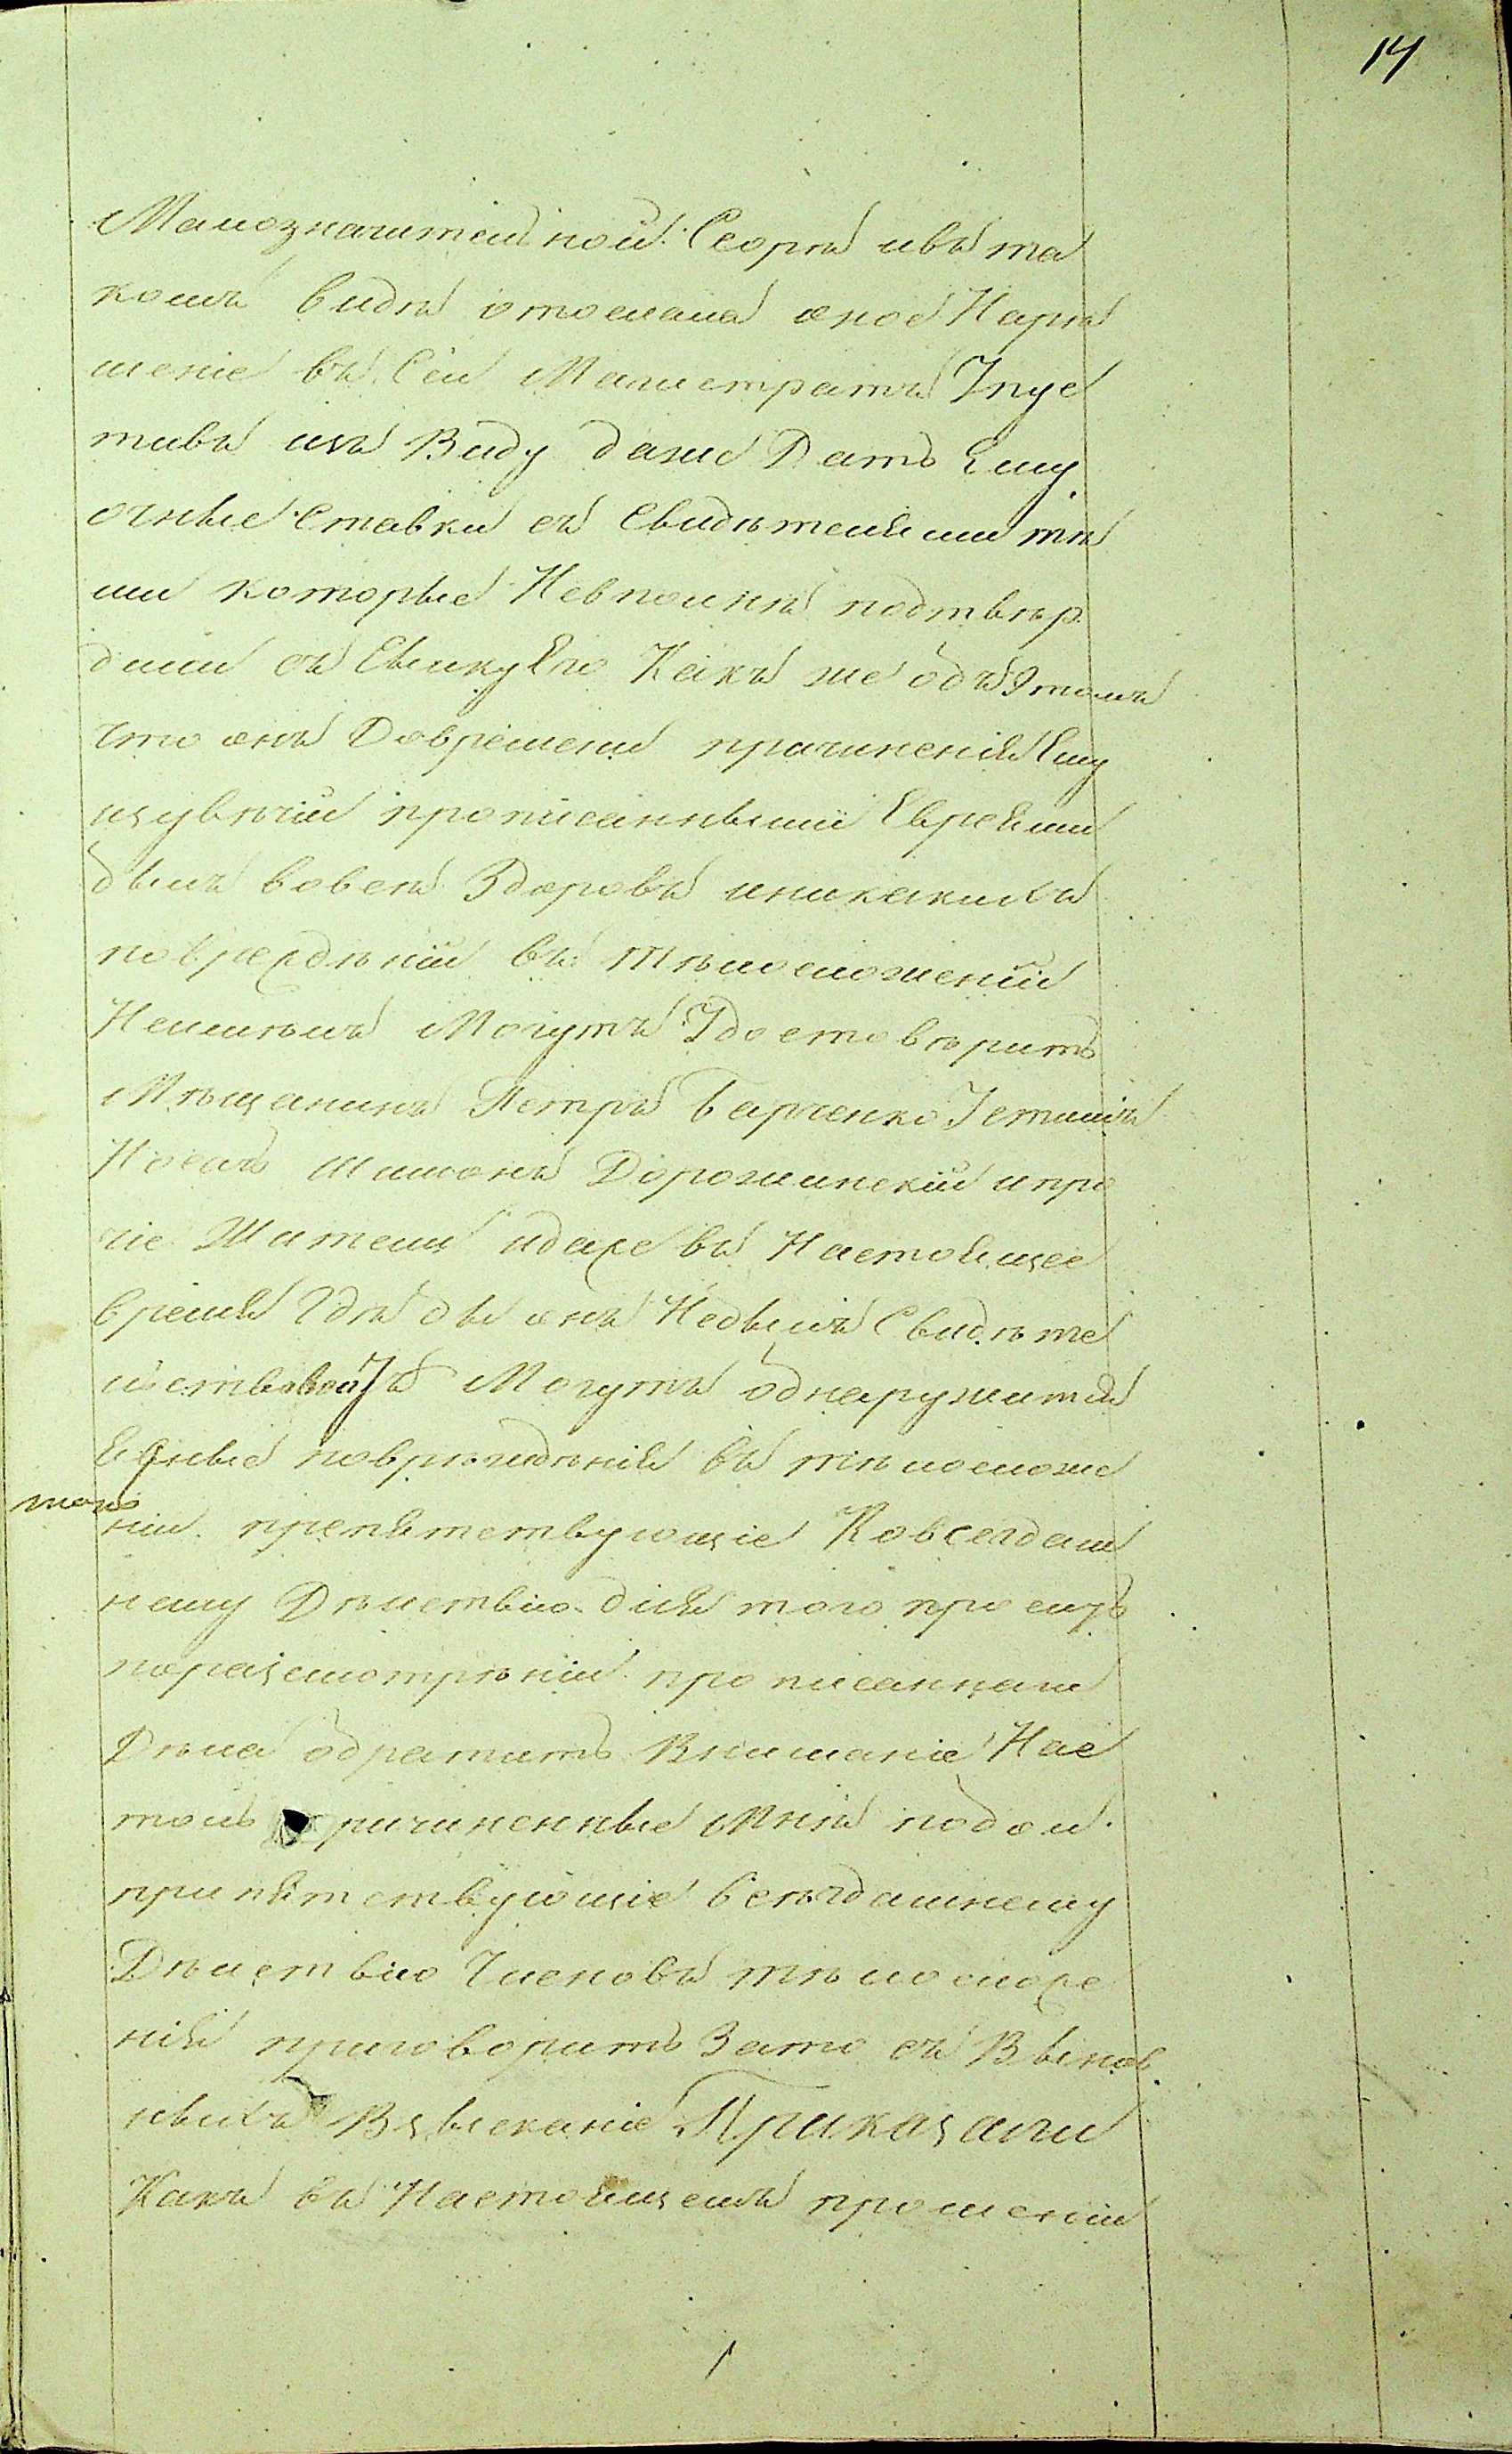 14
Малозначителной Сеоры ивъ та
комъ видѣ отослала оное Нарѣ
шеніе въ Сей Магистратъ Упус
тивъ изъ Виду даже Дать Ему
очные Ставки съ Свидѣтелями тѣ
ми которые Невполнѣ подтвѣр
дили съ Ему Его Какъ же объ Этомъ
что онъ Довремени причиненія Ему
изувѣчій прописанными Евреями
былъ вовсемъ Здоровъ иникакихъ
поврежденій въ тѣлосложеніи
Неимѣлъ Могутъ Удостовѣрить
Мѣщанинъ Петръ Барченко
Шимонъ Дорожинскій ипро
чіе Жители идаже въ Настоящее
время Гдѣ бы онъ Небылъ Свидѣте
льствованъ Могутъ обнаружится
Ясные поврежденія въ тѣлосложе
ніи препятствующіе Ковсегдаш
нему Дѣйствію для того проситъ
поразсмотрѣніи прописаннаго
Дѣла обратить Вниманіе Нас
толь причиненные Мнѣ побои
припятствующіе всегдашнему
Дѣйствію Членовъ тѣлосложе
нія приговорить Зато съ Винов
ныхъ Взысканіе Приказали
Какъ въ Настоящемъ прошеніи